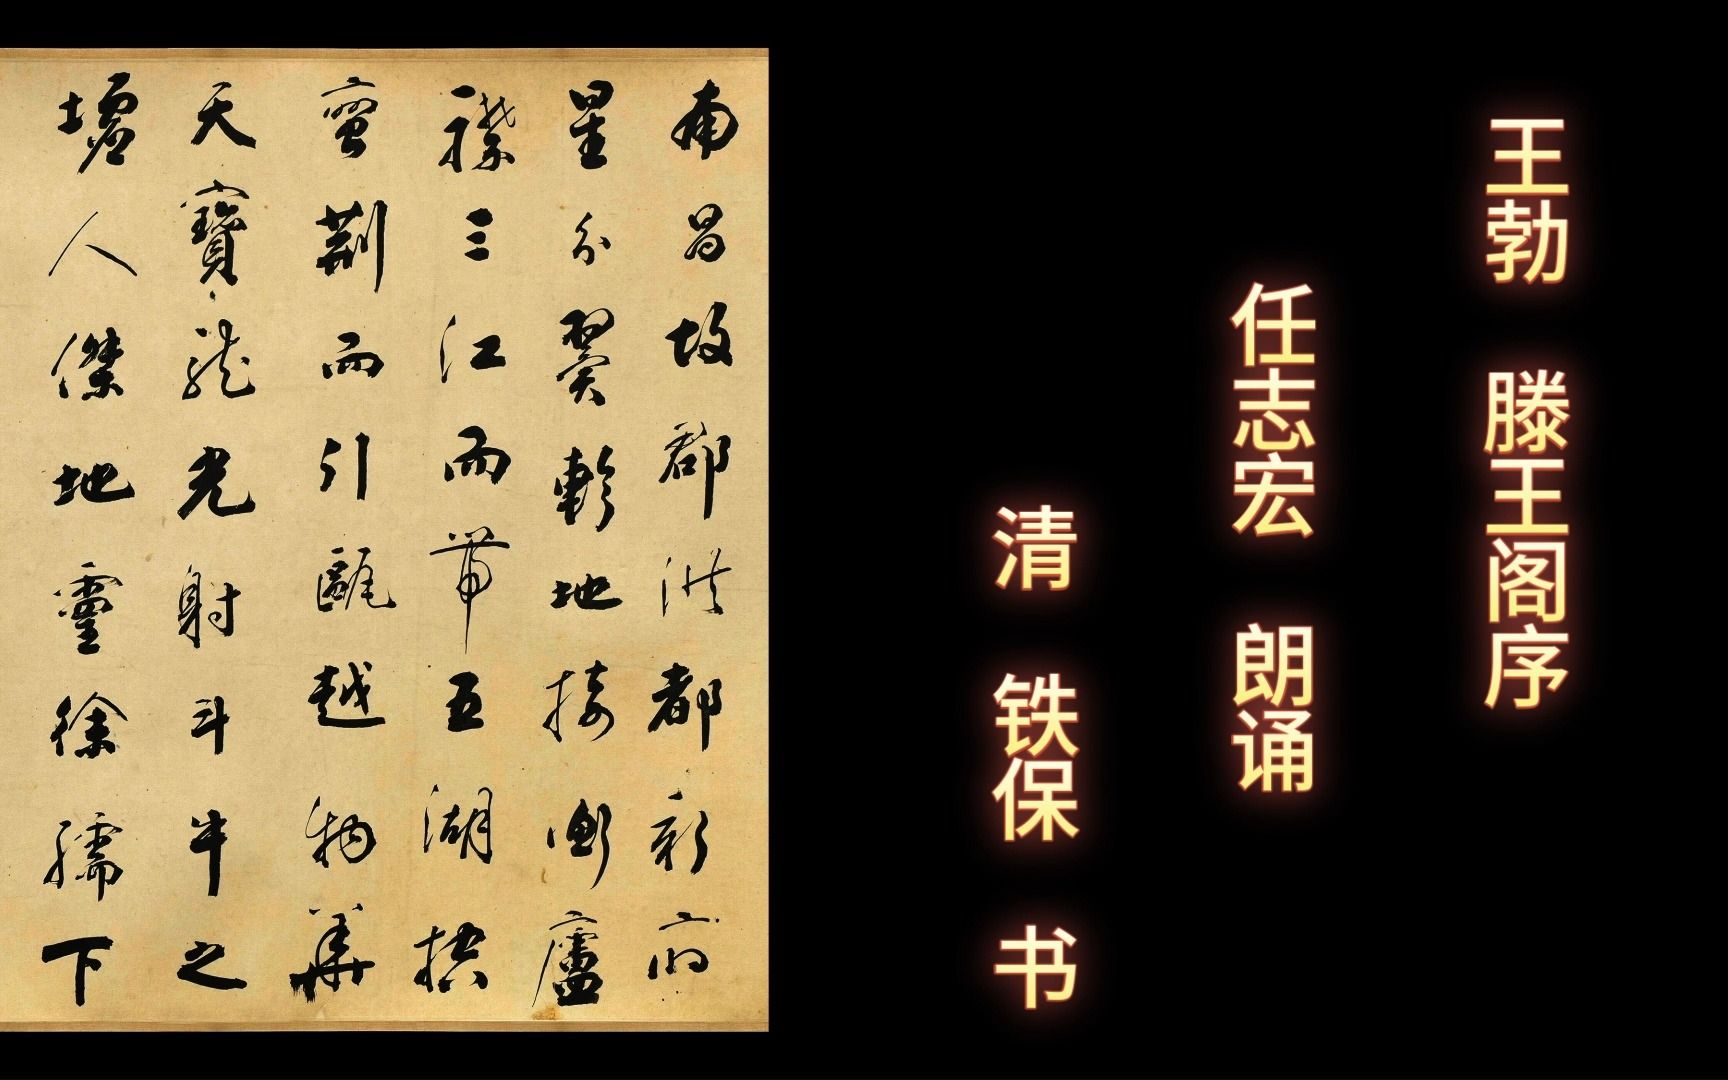 王勃 滕王阁序
任志宏 朗诵
清 铁保 书
南昌故郡洪都新府
星分翼軫地接衡廬
襟三江而帶五湖控
蛮荆而引甌越物華
天寶龍光射斗牛之
墟人傑地靈徐孺下